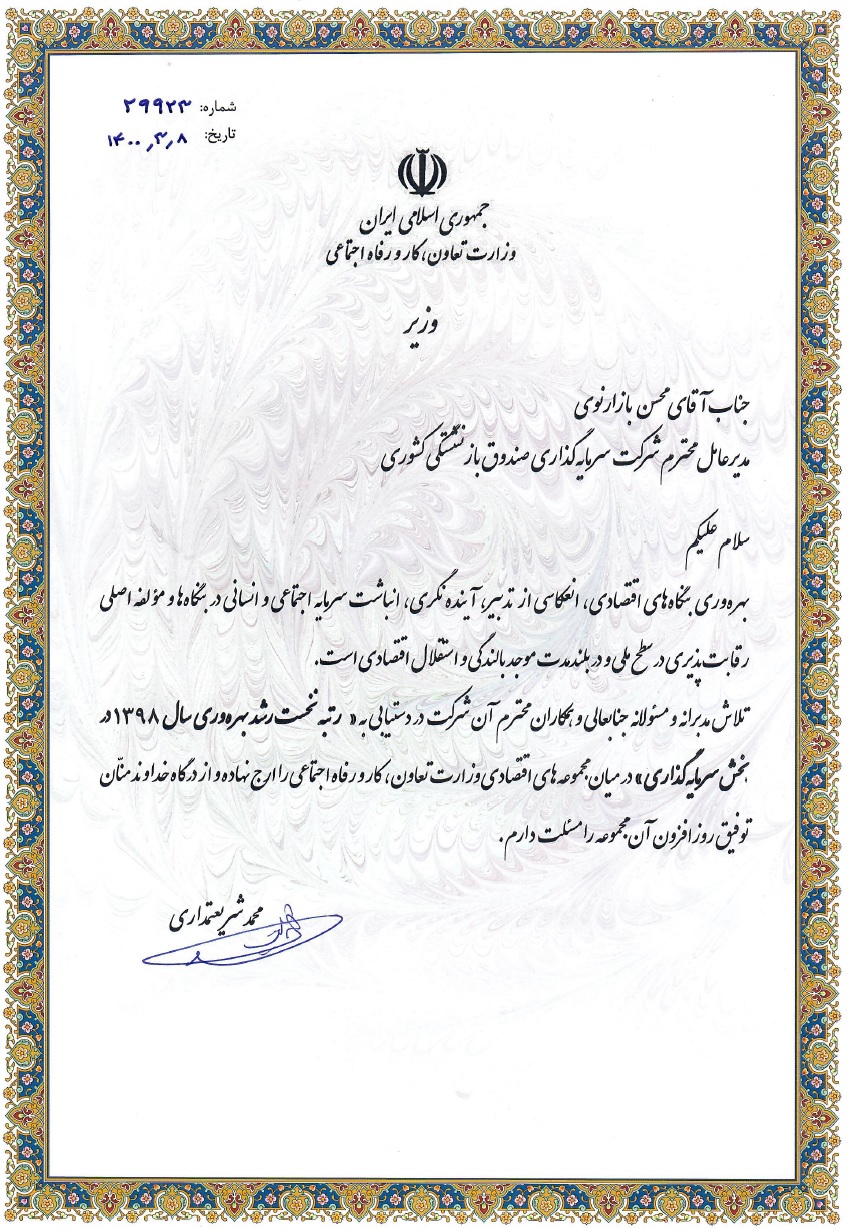 شماره: ۲۹۹۲۳
تاریخ: ۱۴۰۰,۳,۸
جمهوری اسلامی ایران
وزارت تعاون، کار و رفاه اجتماعی
وزیر
جناب آقای محسن بازارنوی
مدیرعامل محترم شرکت سرمایه گذاری صندوق بازنشستگی کشوری
سلام علیکم
بهره‌وری بنگاه‌های اقتصادی، انعکاسی از تدبیر، آینده نگری، انباشت سرمایه اجتماعی و انسانی در بنگاه‌ها و مؤلفه اصلی
رقابت پذیری در سطح ملی و در بلندمدت موجد بالندگی و استقلال اقتصادی است.
تلاش مدبرانه و مسئولانه جنابعالی و همکاران محترم آن شرکت در دستیابی به « رتبه نخست رشد بهره‌وری سال ۱۳۹۸ در
بخش سرمایه گذاری» در میان مجموعه های اقتصادی وزارت تعاون، کار و رفاه اجتماعی را ارج نهاده و از درگاه خداوند منّان
توفیق روزافزون آن مجموعه را مسئلت دارم.
محمد شریعتمداری